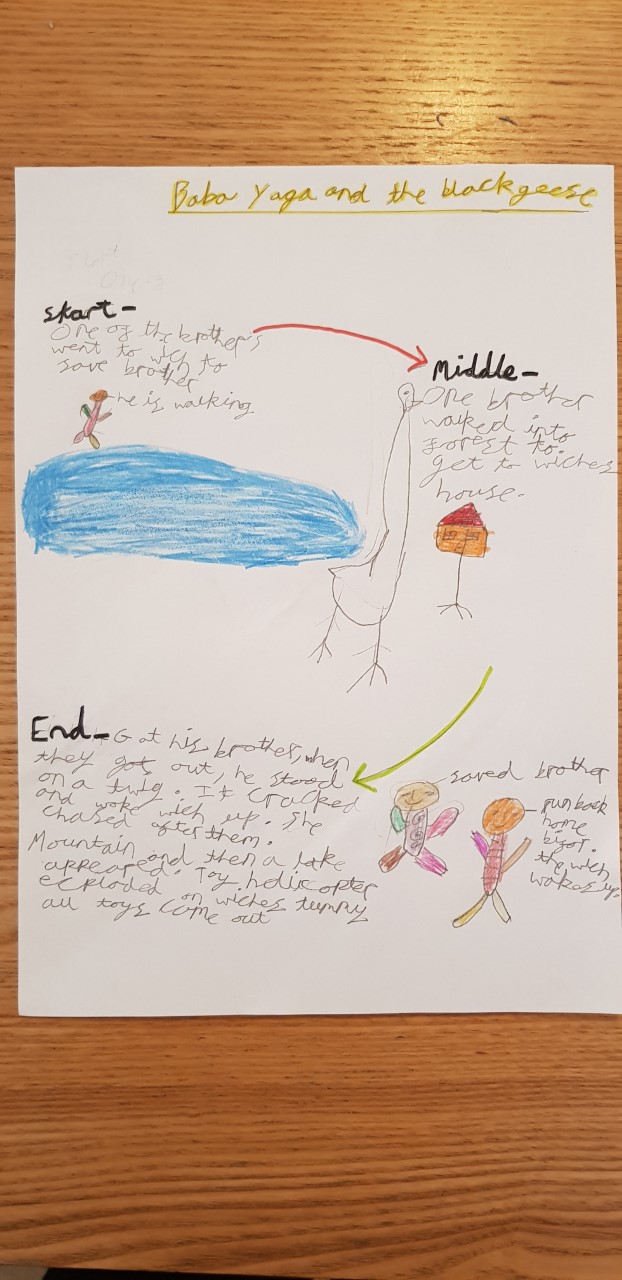 Baba Yaga and the blackgeese
Skart-
One of the brother's
went to wich to
save brother
he is walking
Middle-
One brother
walked into
Forest to.
get to wiches
house.
End- Got his brother, when
they got out, he stood
on a twig. It cracked
and woke wich up. She
chased after them.
Mountain and then a lake
appeared. Toy helicopter
ecploded on wiches tummy
all toys come out
saved brother
run back
home
bifor.
the wich
wakes up.